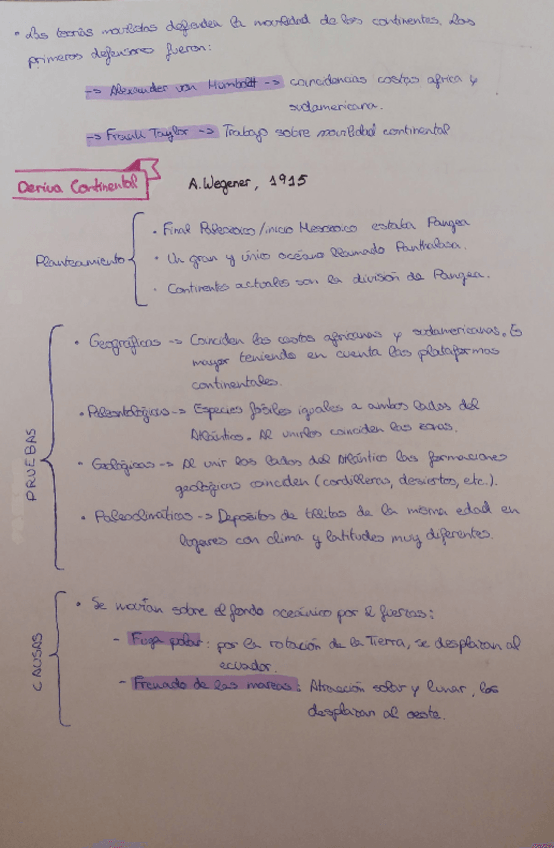 • Las teorías movilistas defienden la movilidad de los continentes. Los
primeros defensores fueron:
-> Alexander von Humboldt -> coincidencias costas africa y
sudamericana.
-> Frank Taylor -> Trabajo sobre movilidad continental
Deriva Continental A. Wegener, 1915
Planteamiento
• Final Paleozoico/inicio Mesozoico estaba Pangea
• Un gran y único océano llamado Panthalasa.
• Continentes actuales son la división de Pangea.
PRUEBAS
• Geográficas -> Coinciden las costas africanas y sudamericanas. Es
mayor teniendo en cuenta las plataformas
continentales.
• Paleontológicas -> Especies fósiles iguales a ambos lados del
Atlántico. Al unirlos coinciden las zonas.
• Geológicas -> Al unir los lados del Atlántico las formaciones
geológicas coinciden (cordilleras, desiertos, etc.).
• Paleoclimáticas -> Depósitos de tillitas de la misma edad en
lugares con clima y latitudes muy diferentes.
CAUSAS
• Se movían sobre el fondo oceánico por 2 fuerzas:
- Fuga polar: por la rotación de la Tierra, se desplazan al
ecuador.
- Frenado de las mareas: Atracción solar y lunar, los
desplazan al oeste.